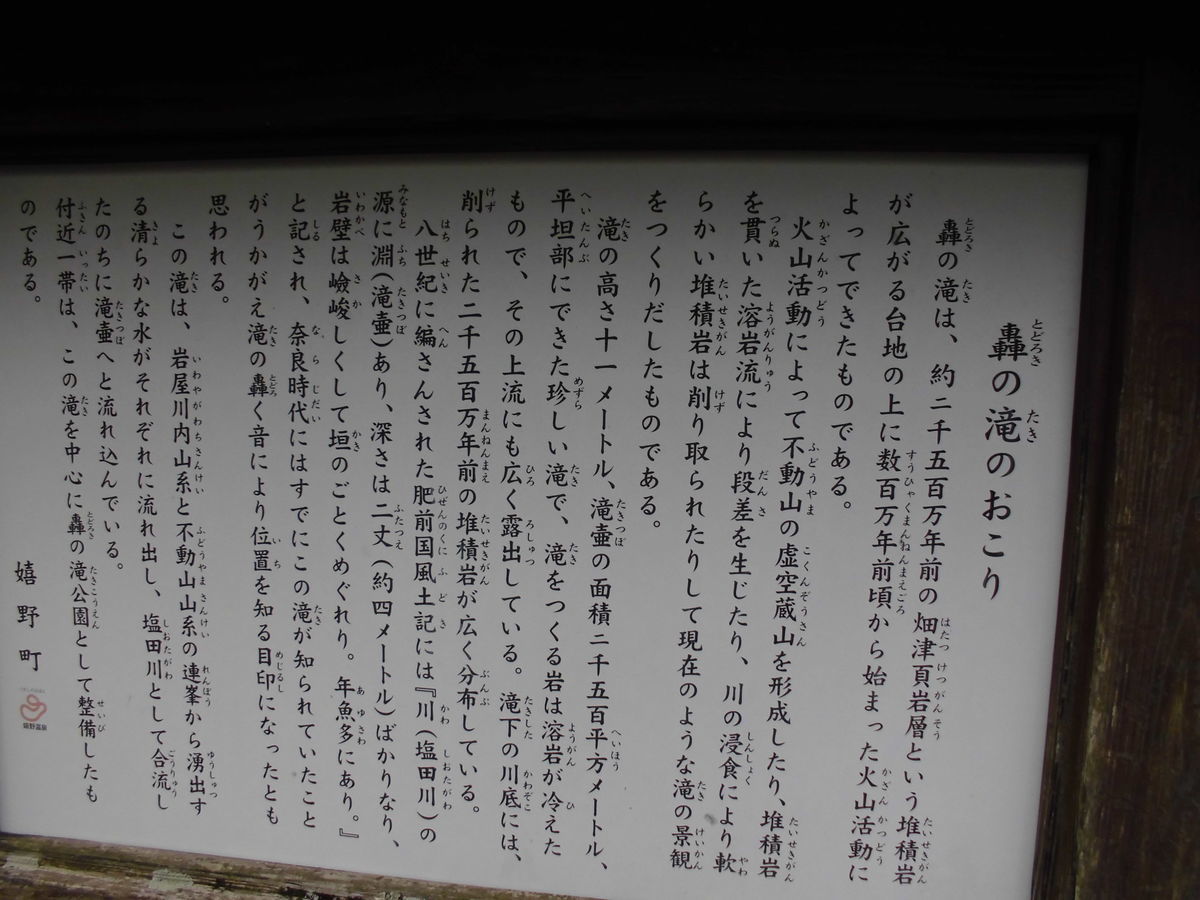 轟の滝のおこり
轟の滝は、約二千五百万年前の畑津頁岩層という堆積岩
が広がる台地の上に数百万年前頃から始まった火山活動に
よってできたものである。
火山活動によって不動山の虚空蔵山を形成したり、堆積岩
を貫いた溶岩流により段差を生じたり、川の浸食により軟
らかい堆積岩は削り取られたりして現在のような滝の景観
をつくりだしたものである。
滝の高さ十一メートル、滝壷の面積二千五百平方メートル、
平坦部にできた珍しい滝で、滝をつくる岩は溶岩が冷えた
もので、その上流にも広く露出している。滝下の川底には、
削られた二千五百万年前の堆積岩が広く分布している。
八世紀に編さんされた肥前国風土記には『川(塩田川)の
源に淵(滝壷)あり、深さは二丈(約四メートル)ばかりなり、
岩壁は嶮峻しくして垣のごとくめぐれり。年魚多にあり。』
と記され、奈良時代にはすでにこの滝が知られていたこと
がうかがえ滝の轟く音により位置を知る目印になったとも
思われる。
この滝は、岩屋川内山系と不動山山系の連峯から湧出す
る清らかな水がそれぞれに流れ出し、塩田川として合流し
たのちに滝壷へと流れ込んでいる。
付近一帯は、この滝を中心に轟の滝公園として整備したも
のである。
嬉野町
嬉野温泉